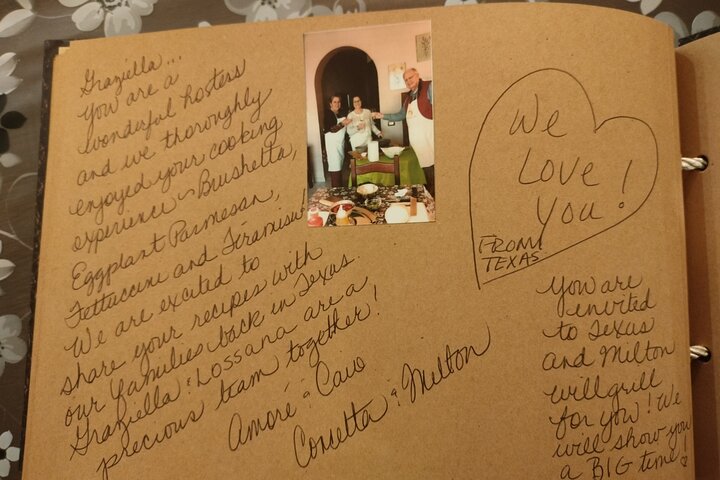 Graziella...
You are a
wonderful hosters
and we thoroughly
enjoyed your cooking
experience - Brushetta,
Eggplant Parmesan,
Fettuccini and Tiramisu!
We are excited to
share your recipes with
our families back in Texas.
Graziella & Lossana are a
precious team together!
Amoré & Caio
& Milton
We
Love
You!
FROM
TEXAS
You are
invited
to Texas
and Milton
will grill
for you! We
will show you
a BIG time!